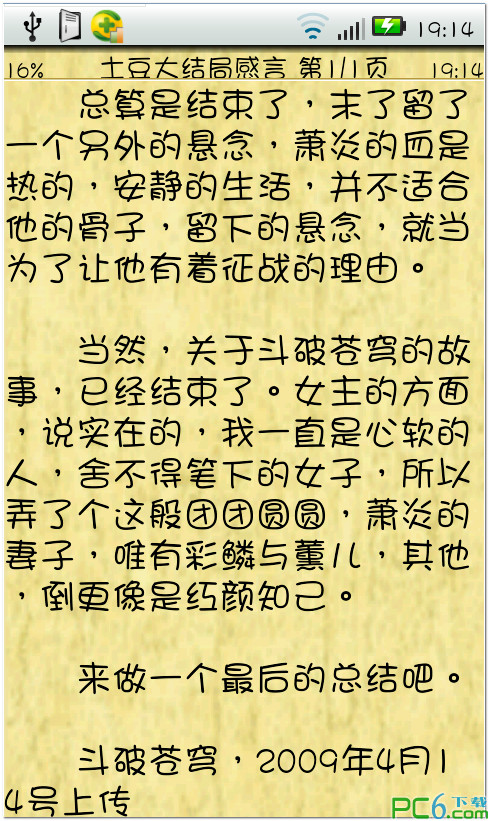 19:14
16% 土豆大结局感言 第1/1页 19:14
总算是结束了，末了留了
一个另外的悬念，萧炎的血是
热的，安静的生活，并不适合
他的骨子，留下的悬念，就当
为了让他有着征战的理由。
当然，关于斗破苍穹的故
事，已经结束了。女主的方面
，说实在的，我一直是心软的
人，舍不得笔下的女子，所以
弄了个这般团团圆圆，萧炎的
妻子，唯有彩鳞与薰儿，其他
，倒更像是红颜知己。
来做一个最后的总结吧。
斗破苍穹，2009年4月1
4号上传
PC6下载
.com